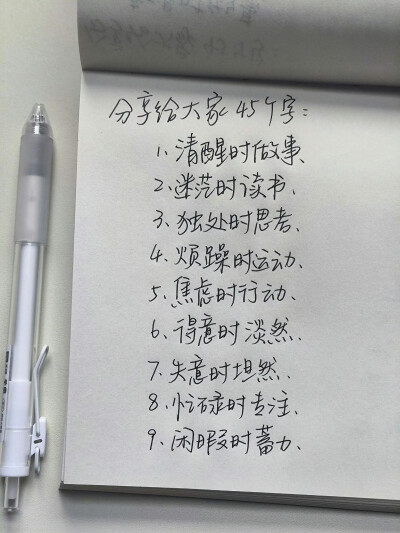 分享给大家45个字:
1、清醒时做事、
2、迷茫时读书、
3、独处时思考、
4、烦躁时运动、
5、焦虑时行动、
6、得意时淡然、
7、失意时坦然、
8、忙碌时专注、
9、闲暇时蓄力、